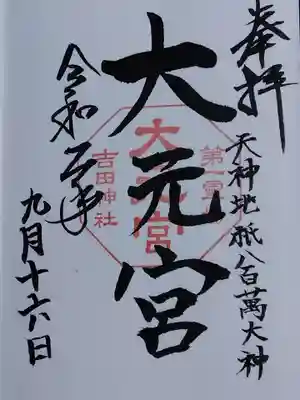 奉拝
天神地祇八百萬大神
大元宮
大元宮
吉田神社
令和二年
九月十六日